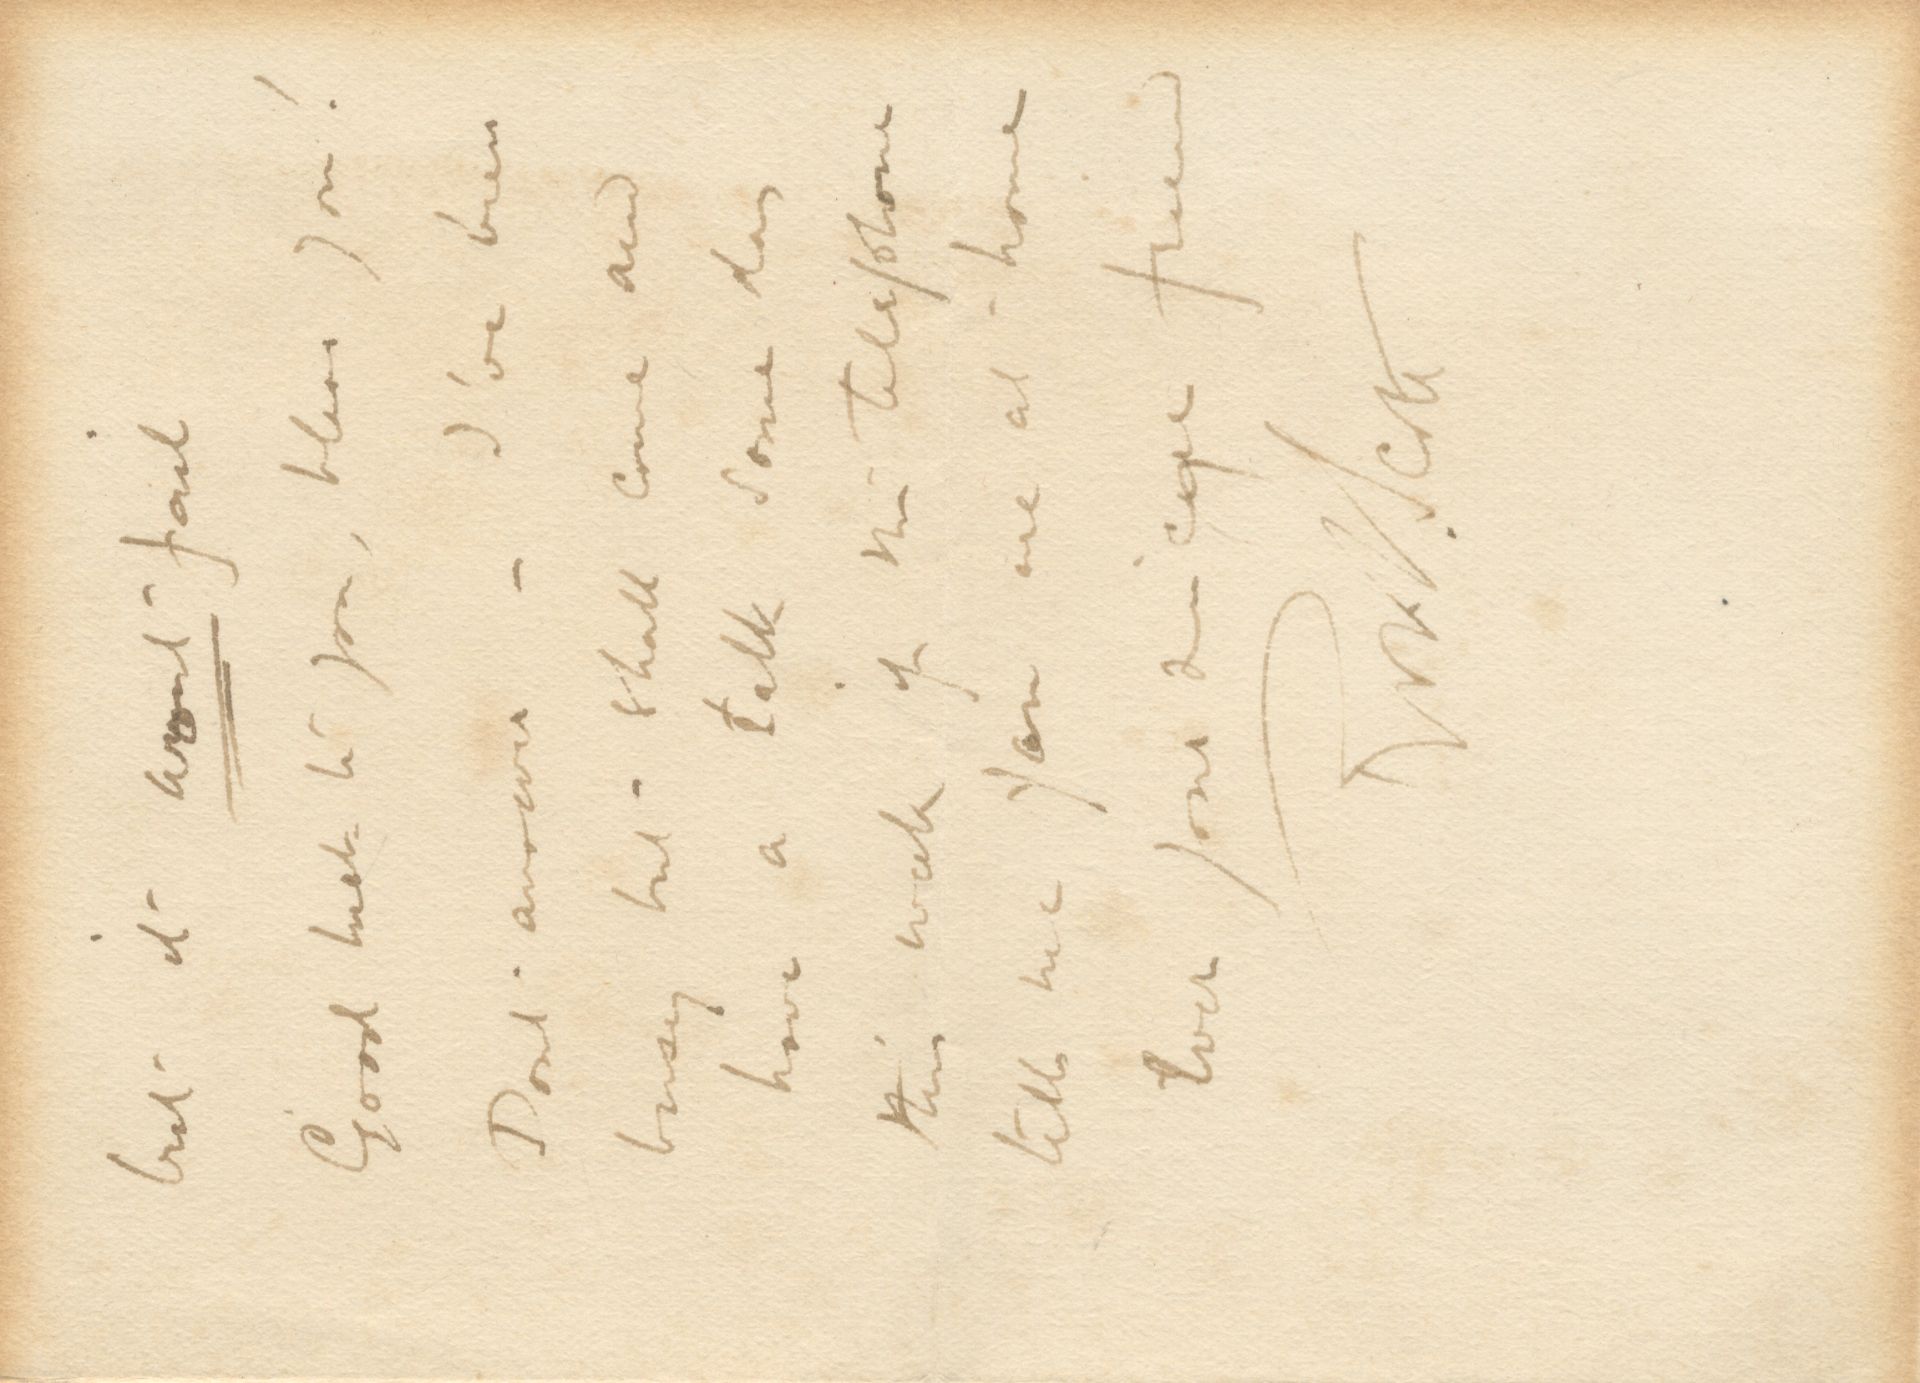 but it wont fail
Good luck to you, bless you!
Dont answer - I've been
busy but shall come and
have a talk some day
this week if the telephone
tells me you are at home
Ever your sincere friend